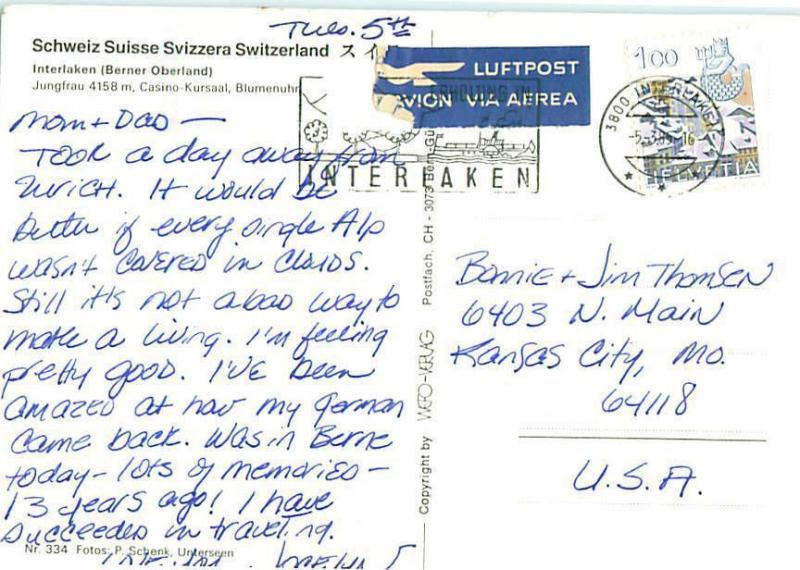 Tues. 5th
Schweiz Suisse Svizzera Switzerland
Interlaken (Berner Oberland)
Jungfrau 4158 m, Casino-Kursaal, Blumenuhr
LUFTPOST
AVION VIA AEREA
ERHOLUNG IN
INTERLAKEN
100
3800 INTERLAKEN
HELVETIA
Mom + Dad —
Took a day away from
Zurich. It would be
better if every single Alp
wasn't covered in clouds.
Still it's not a bad way to
make a living. I'm feeling
pretty good. I've been
amazed at how my German
came back. Was in Berne
today - lots of memories -
13 years ago! I have
succeeded in traveling.
Nr. 334 Fotos: P. Schenk, Unterseen
Copyright by WERO-VERLAG Postfach, CH - 3073
Bonnie + Jim Thomsen
6403 N. Main
Kansas City, Mo.
64118
U.S.A.